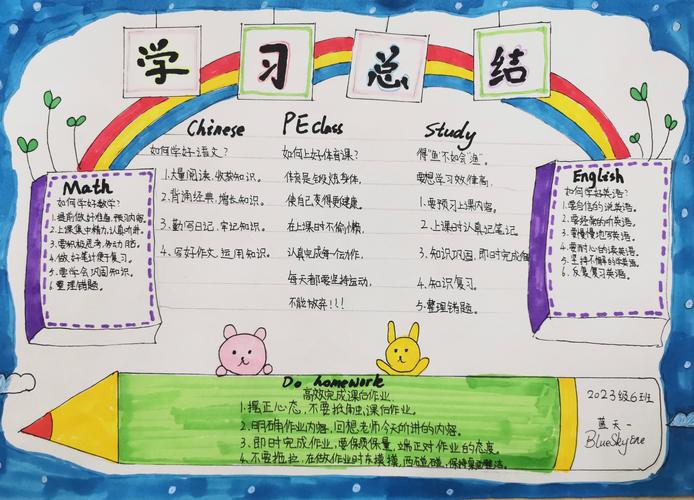 学习总结
Chinese
如何学好语文?
1.大量阅读,收获知识。
2.背诵经典,增长知识。
3.勤写日记,牢记知识。
4.写好作文,运用知识。
PE class
如何上好体育课?
体育是锻炼身体,
使自己变得更健康。
在上课时不偷懒,
认真完成每一个动作,
每天都要坚持运动,
不能放弃!!!
Study
得“鱼”不如会“渔”。
要想学习效率高,
1.要预习上课内容。
2.上课时认真记笔记。
3.知识巩固,即时完成
4.知识复习。
5.整理错题。
Math
如何学好数学?
1.提前做好准备,预习内容。
2.上课集中精力,认真听讲。
3.要积极思考,侟动脑。
4.做好笔记便于复习。
5.要学会巩固知识。
6.整理错题。
English
如何学好英语?
1.要自信的说英语。
2.要经常的听英语。
3.要慢慢地写英语。
4.要耐心的读英语。
5.坚持不懈的学英语。
6.反复复习英语。
Do homework
高效完成课后作业
1.摆正心态,不要抵触课后作业。
2.明确作业内容,回想老师今天所讲的内容。
3.即时完成作业,要保质保量,端正对作业的态度。
4.不要拖拉,在做作业时东摸摸,西碰碰,保持桌面整洁。
2023级6班
蓝天一
BlueSky one